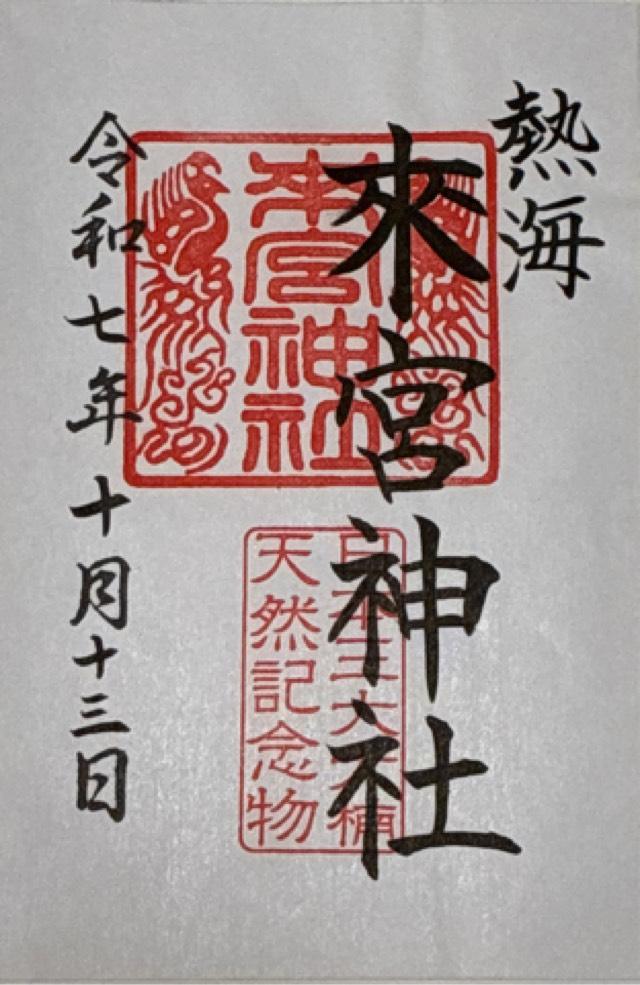 熱海
來宮神社
令和七年十月十三日
來宮神社
日本三大大楠
天然記念物